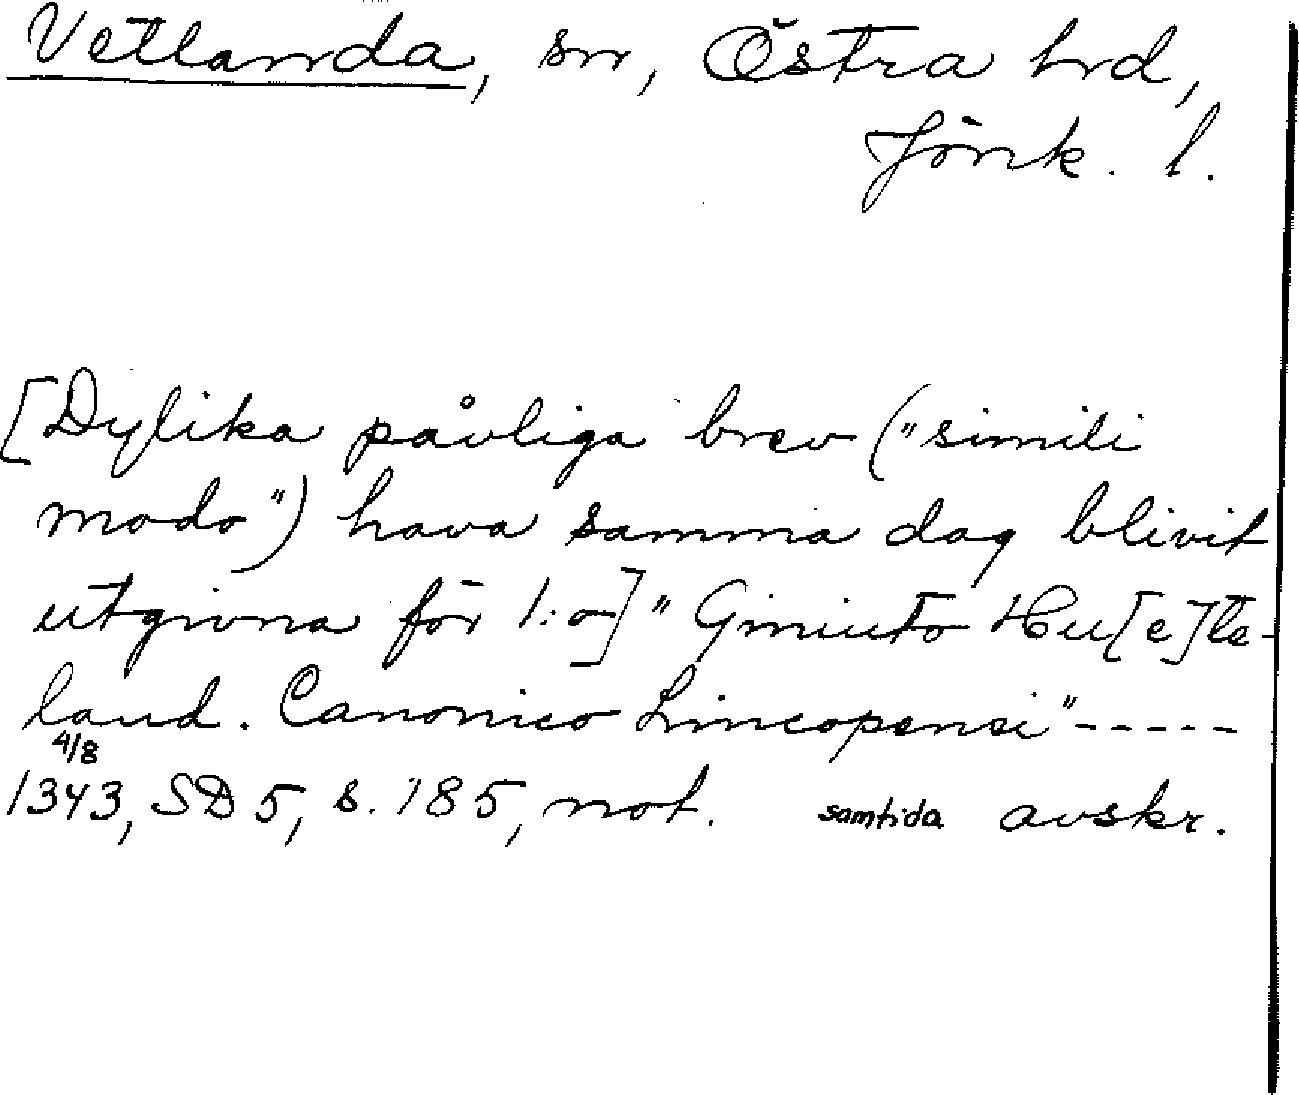 Vetlanda, sn, Östra hrd,
Jönk. l.
[Dylika påvliga brev ("simili
modo") hava samma dag blivit
utgivna för 1:o] "Gmiuto Hu[e]te-
land. Canonico Lincopensi"-----
4/8
1343, SD 5, s. 185, not. samtida avskr.